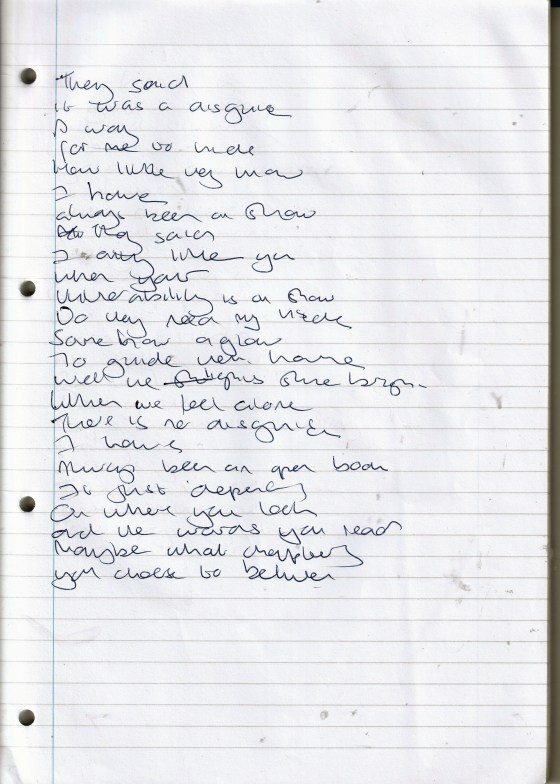 They said
it was a disguise
A way
for me to hide
How little they know
I have
always been on show
They said
I only like you
when your
vulnerability is on show
Do they need my
Somehow a glow
To guide them home
Well the shine bright
When we feel alone
There is no disguise
I have
Always been an open book
It just depends
On where you look
and the words you read
Maybe what chapters
you choose to believe